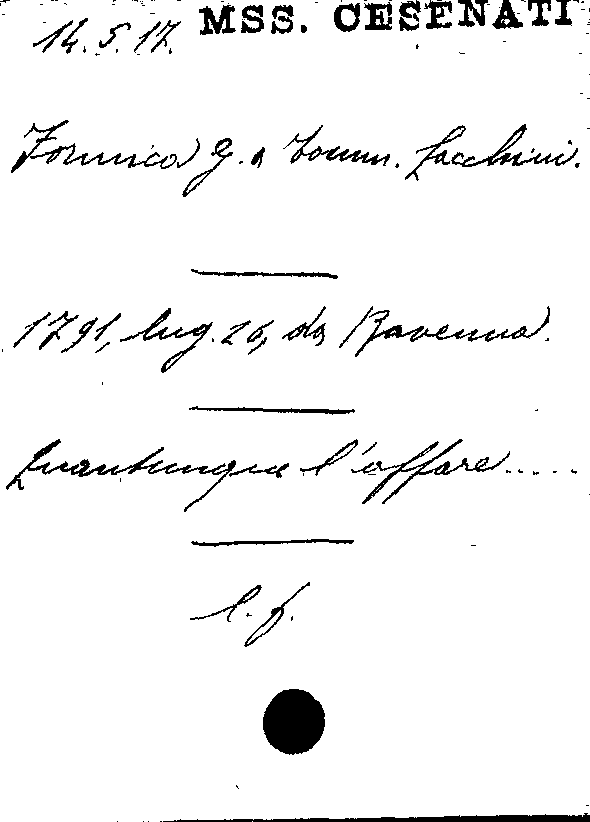 14.5.17. MSS. CESENATI
Formica G. a Tomm. Lacchini.
1791, lug. 26, da Ravenna.
Quantunque l'affare.....
l. f.